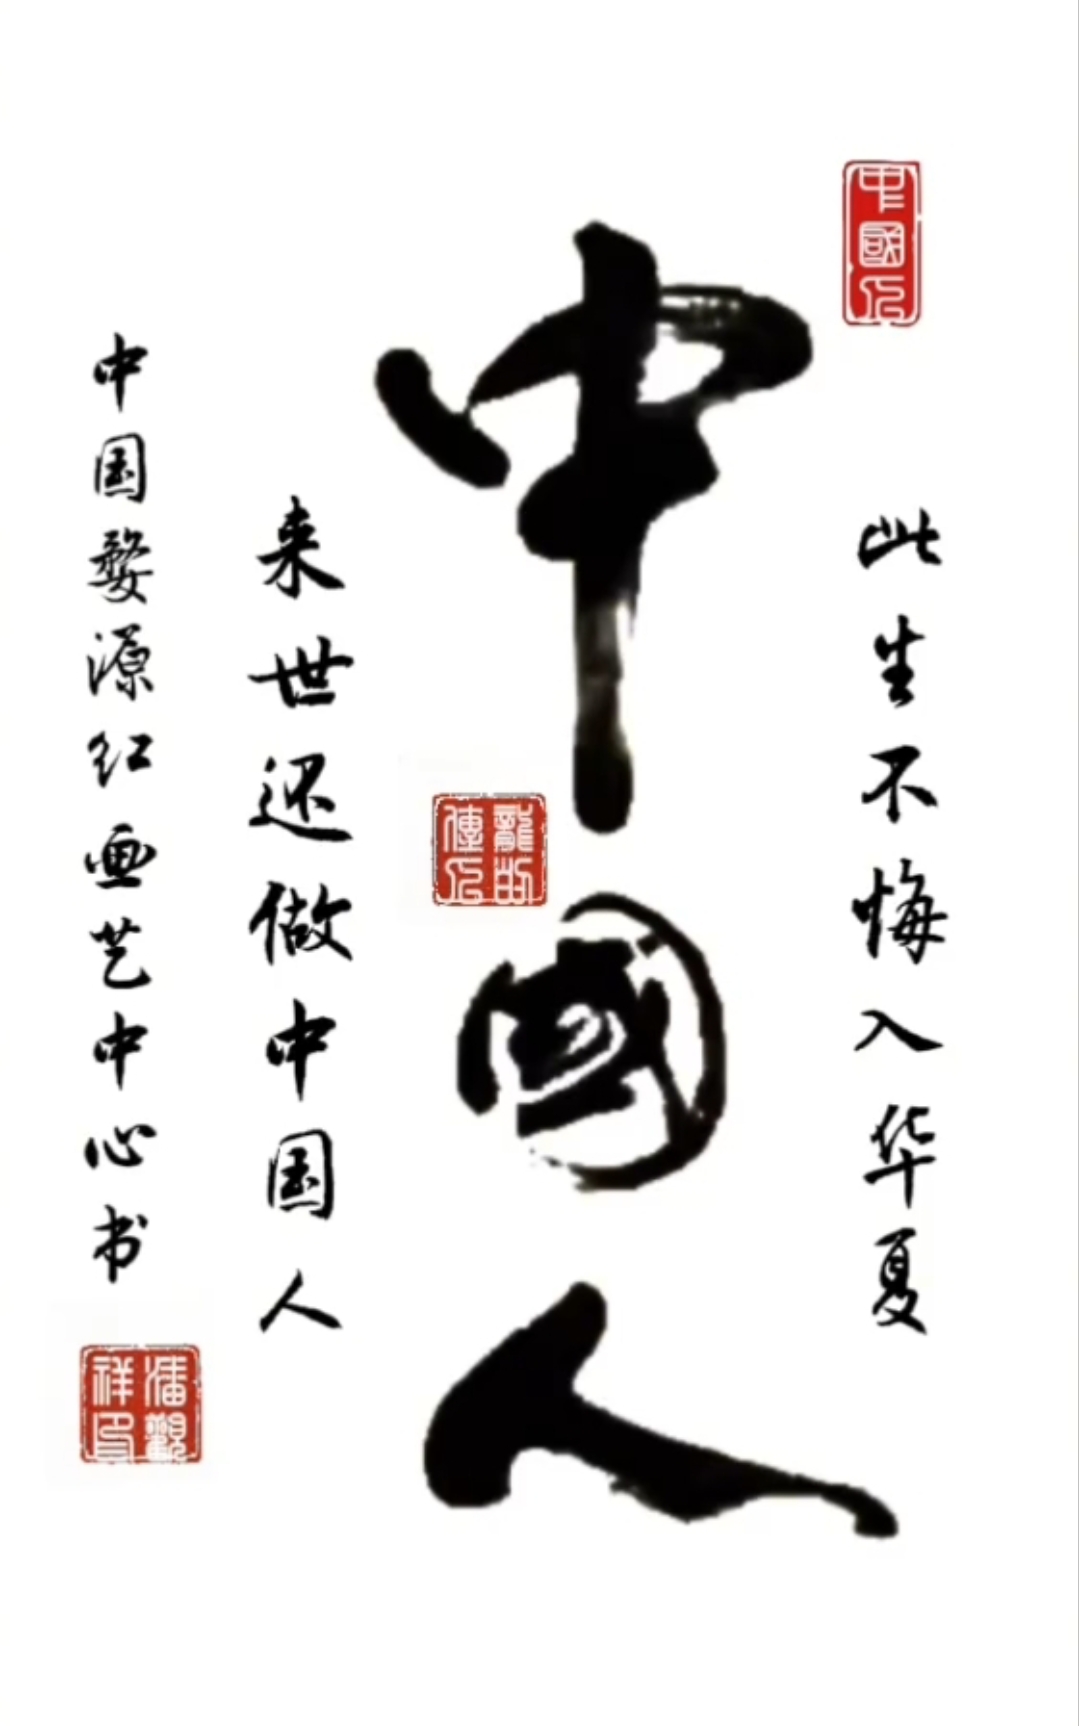 中國人
此生不悔入华夏
中國人
龍的
傳人
来世还做中国人
中国婺源红画艺中心书
潘觀
祥印